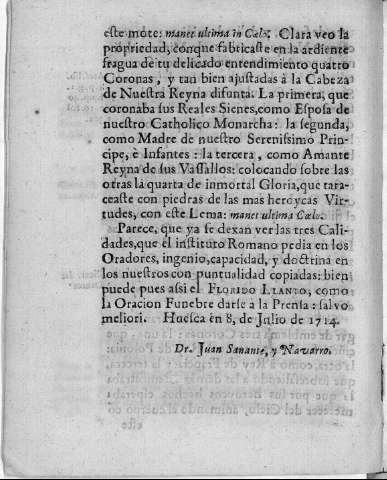 este mote: manet ultima in Cælo. Clara veo la
propriedad, conque fabricaste en la ardiente
fragua de tu delicado entendimiento quatro
Coronas, y tan bien ajustadas à la Cabeza
de Nuestra Reyna difunta. La primera, que
coronaba sus Reales Sienes, como Esposa de
nuestro Catholico Monarcha: la segunda,
como Madre de nuestro Serenissimo Prin-
cipe, è Infantes: la tercera, como Amante
Reyna de sus Vassallos: colocando sobre las
otras la quarta de inmortal Gloria, que tara-
ceaste con piedras de las mas heroycas Vir-
tudes, con este Lema: manet ultima Cælo.
Parece, que ya se dexan ver las tres Cali-
dades, que el instituto Romano pedia en los
Oradores, ingenio, capacidad, y doctrina en
los nuestros con puntualidad copiadas: bien
puede pues assi el FLORIDO LLANTO, como
la Oracion Funebre darse a la Prensa: salvo
meliori. Huesca en 8, de Julio de 1714.
Dr. Juan Sanante, y Navarro.